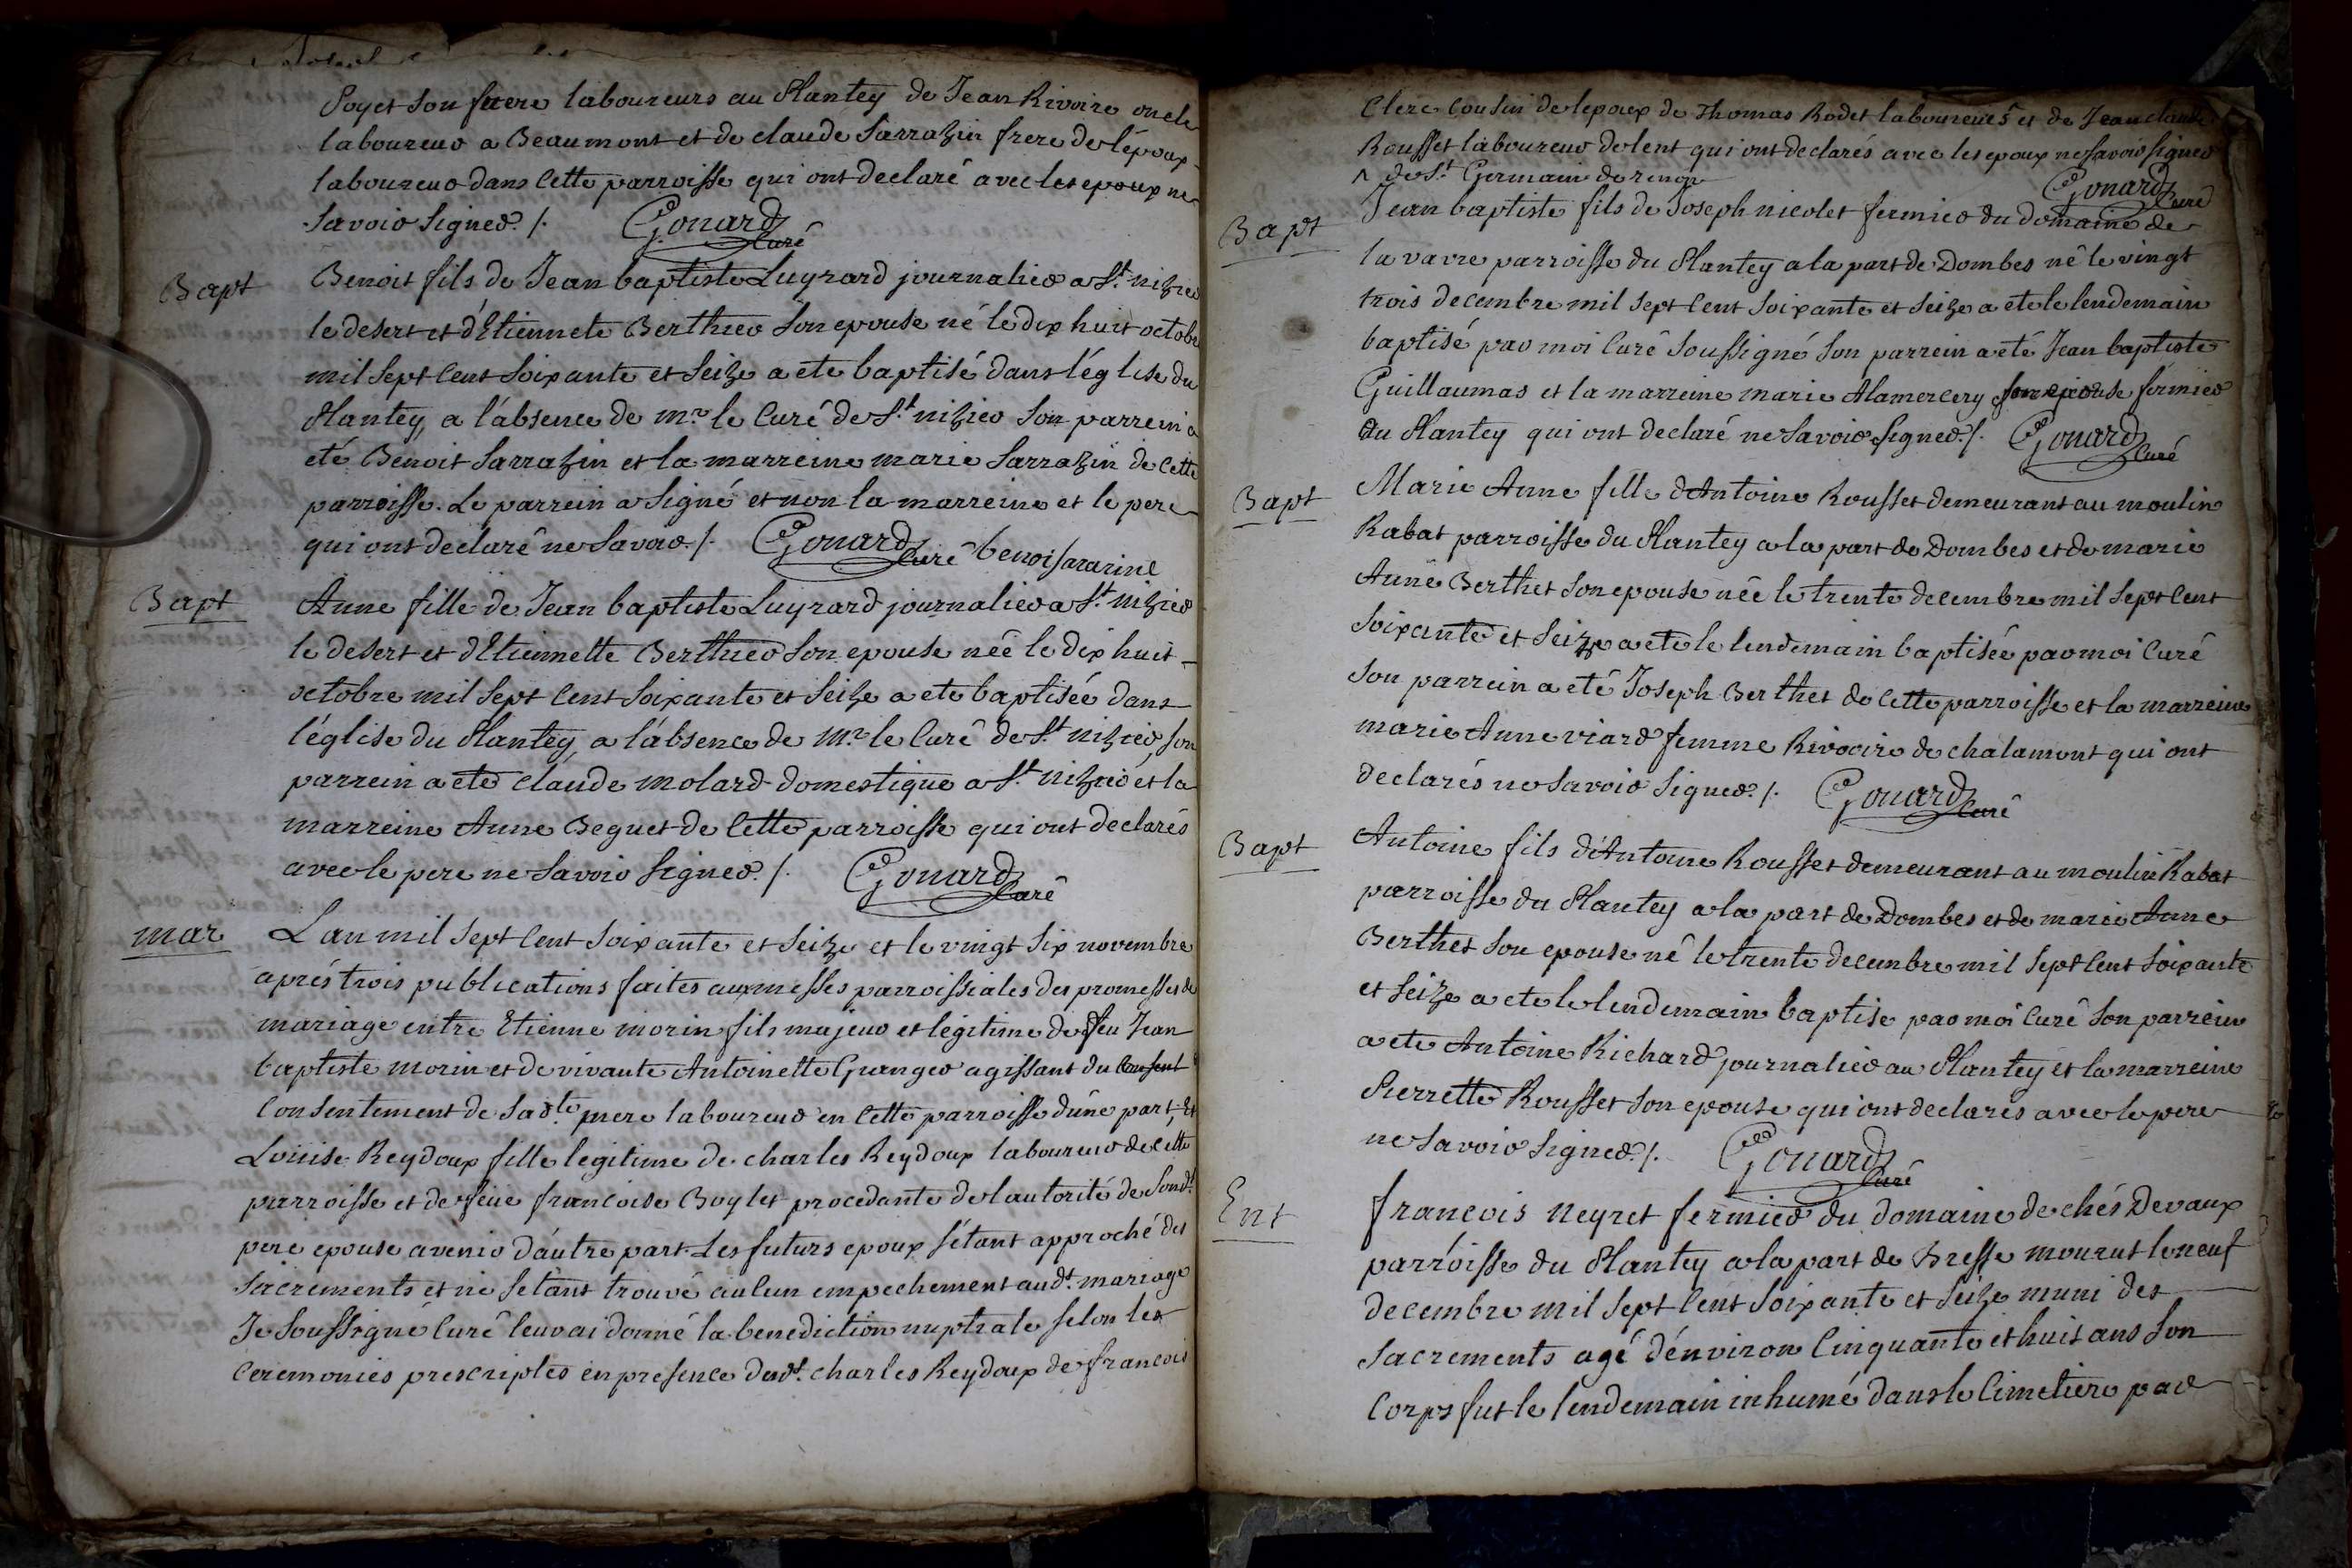 Poyet son frere laboureurs au Plantey de Jean Rivoire oncle
laboureur a Beaumont et de claude Sarrazin frere de l'époux
laboureur dans cette parroisse qui ont declaré avec les epoux ne
savoir signer ./. Gouard Curé
Bapt
Benoit fils de Jean baptiste Luyrard journalier a St. nizier
le desert et d'Etiennete Berthier son epouse né le dix huit octobre
mil sept cent soixante et seize a ete baptisé dans l'église du
Plantey a l'absence de mr. le Curé de St. nizier son parrein a
eté Benoit Sarrazin et la marreine marie Sarrazin de cette
parroisse. Le parrein a signé et non la marreine et le pere
qui ont declaré ne savoir ./. Gouard Curé benoi sararine
Bapt
Anne fille de Jean baptiste Luyrard journalier a St. nizier
le desert et d'Etiennette Berthier son epouse née le dix huit
octobre mil sept cent soixante et seize a ete baptisée dans
l'église du Plantey, a l'absence de Mr. le Curé de St. nizier son
parrein a ete claude molard domestique a St. nizier et la
marreine Anne Beguet de cette parroisse qui ont declarés
avec le pere ne savoir signer ./. Gouard Curé
mar
L'an mil sept cent soixante et seize et le vingt six novembre
aprés trois publications faites aux messes parroissiales des promesses de
mariage entre Etienne morin fils majeur et légitime de feu Jean
baptiste morin et de vivante Antoinette Granger agissant du consent
consentement de sa dte. mere laboureur en cette parroisse d'une part, Et
Louise Reydoux fille legitime de charles Reydoux laboureur de cette
parroisse et de feue francoise Boylet procedante de l'autorité de sondt.
pere epouse avenir d'autre part. Les futurs epoux s'étant approché des
sacrements et ne s'etant trouvé aucun empechement audt. mariage
Je soussigné Curé leur ai donné la benediction nuptiale selon les
ceremonies prescriptes en presence dudt. charles Reydoux de francois
Clerc cousin de lepoux de Thomas Rodet laboureurs et de Jean claude
Rousset laboureur de lent qui ont declarés avec les epoux ne savoir signer
^ de St. Germain de renon Gouard Curé
Bapt
Jean baptiste fils de Joseph nicolet fermier du domaine de
la vavre parroisse du Plantey a la part de Dombes né le vingt
trois decembre mil sept cent soixante et seize a ete le lendemain
baptisé par moi Curé soussigné son parrein a eté Jean baptiste
Guillaumas et la marreine marie Alamercery son epouse fermier
du Plantey qui ont declaré ne savoir signer ./. Gouard Curé
Bapt
Marie Anne fille d'Antoine Rousset demeurant au moulin
Rabat parroisse du Plantey a la part de Dombes et de marie
Anne Berthet son epouse née le trente decembre mil sept cent
soixante et seize a ete le lendemain baptisée par moi Curé
son parrein a eté Joseph Berthet de cette parroisse et la marreine
marie Anne viard femme Rivoire de chalamont qui ont
declarés ne savoir signer ./. Gouard Curé
Bapt
Antoine fils d'Antoine Rousset demeurant au moulin Rabat
parroisse du Plantey a la part de Dombes et de marie Anne
Berthet son epouse né le trente decembre mil sept cent soixante
et seize a ete le lendemain baptise par moi Curé son parrein
a ete Antoine Richard journalier au Plantey et la marreine
Pierrette Rousset son epouse qui ont declarés avec le pere
ne savoir signer ./. Gouard Curé
Ent
francois Neyret fermier du domaine de chés Devaux
parroisse du Plantey a la part de Bresse mourut le neuf
decembre mil sept cent soixante et seize muni des
sacrements agé d'environ cinquante et huit ans son
corps fut le lendemain inhumé dans le Cimetiere par